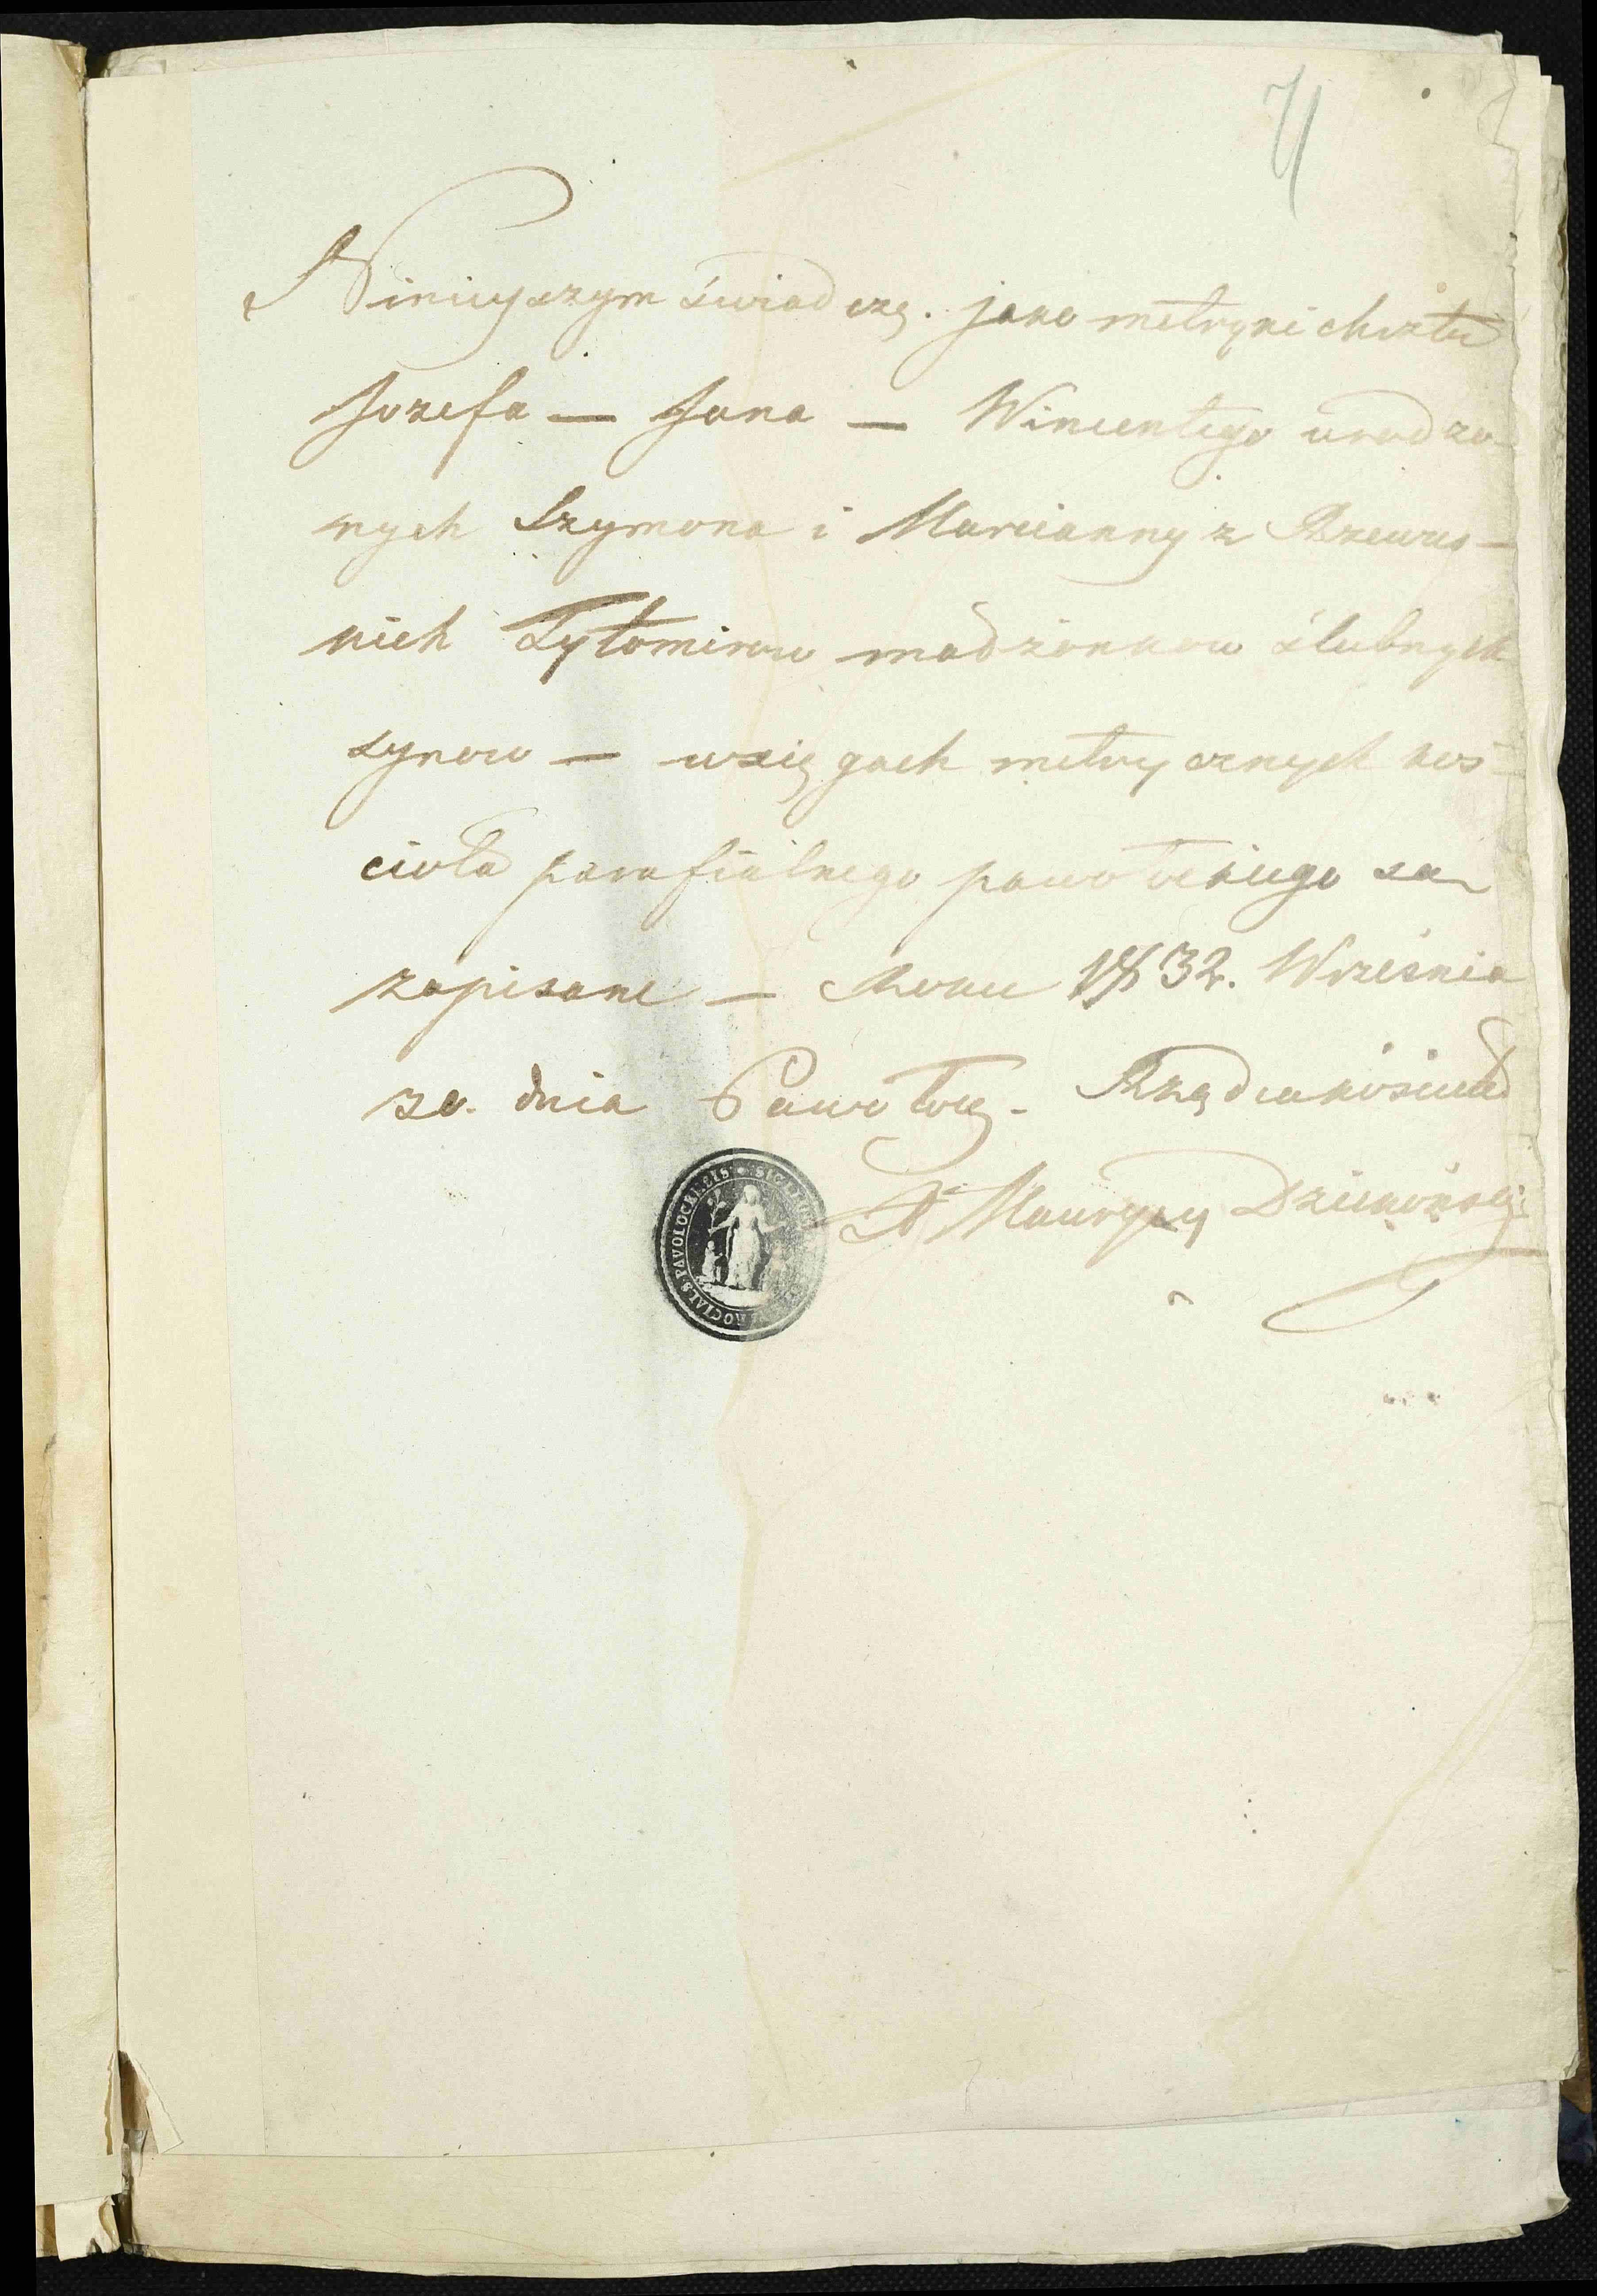 4
Niniejszym świadczę. jako metryki chrztu
Jozefa — Jana — Wincentego urodzo-
nych Szymona i Marcianny z Rzewus-
kich Tytomirow madżonkow ślubnych
synow — wxięgach metrycznych koś-
cioła parafialnego pawołockiego są
zapisane — Roku 1832. Września
30. dnia Pawołocz. Rządca kościoła
X Maurycy Dziekoński
PAROCIALS PAVOLOCENSIS